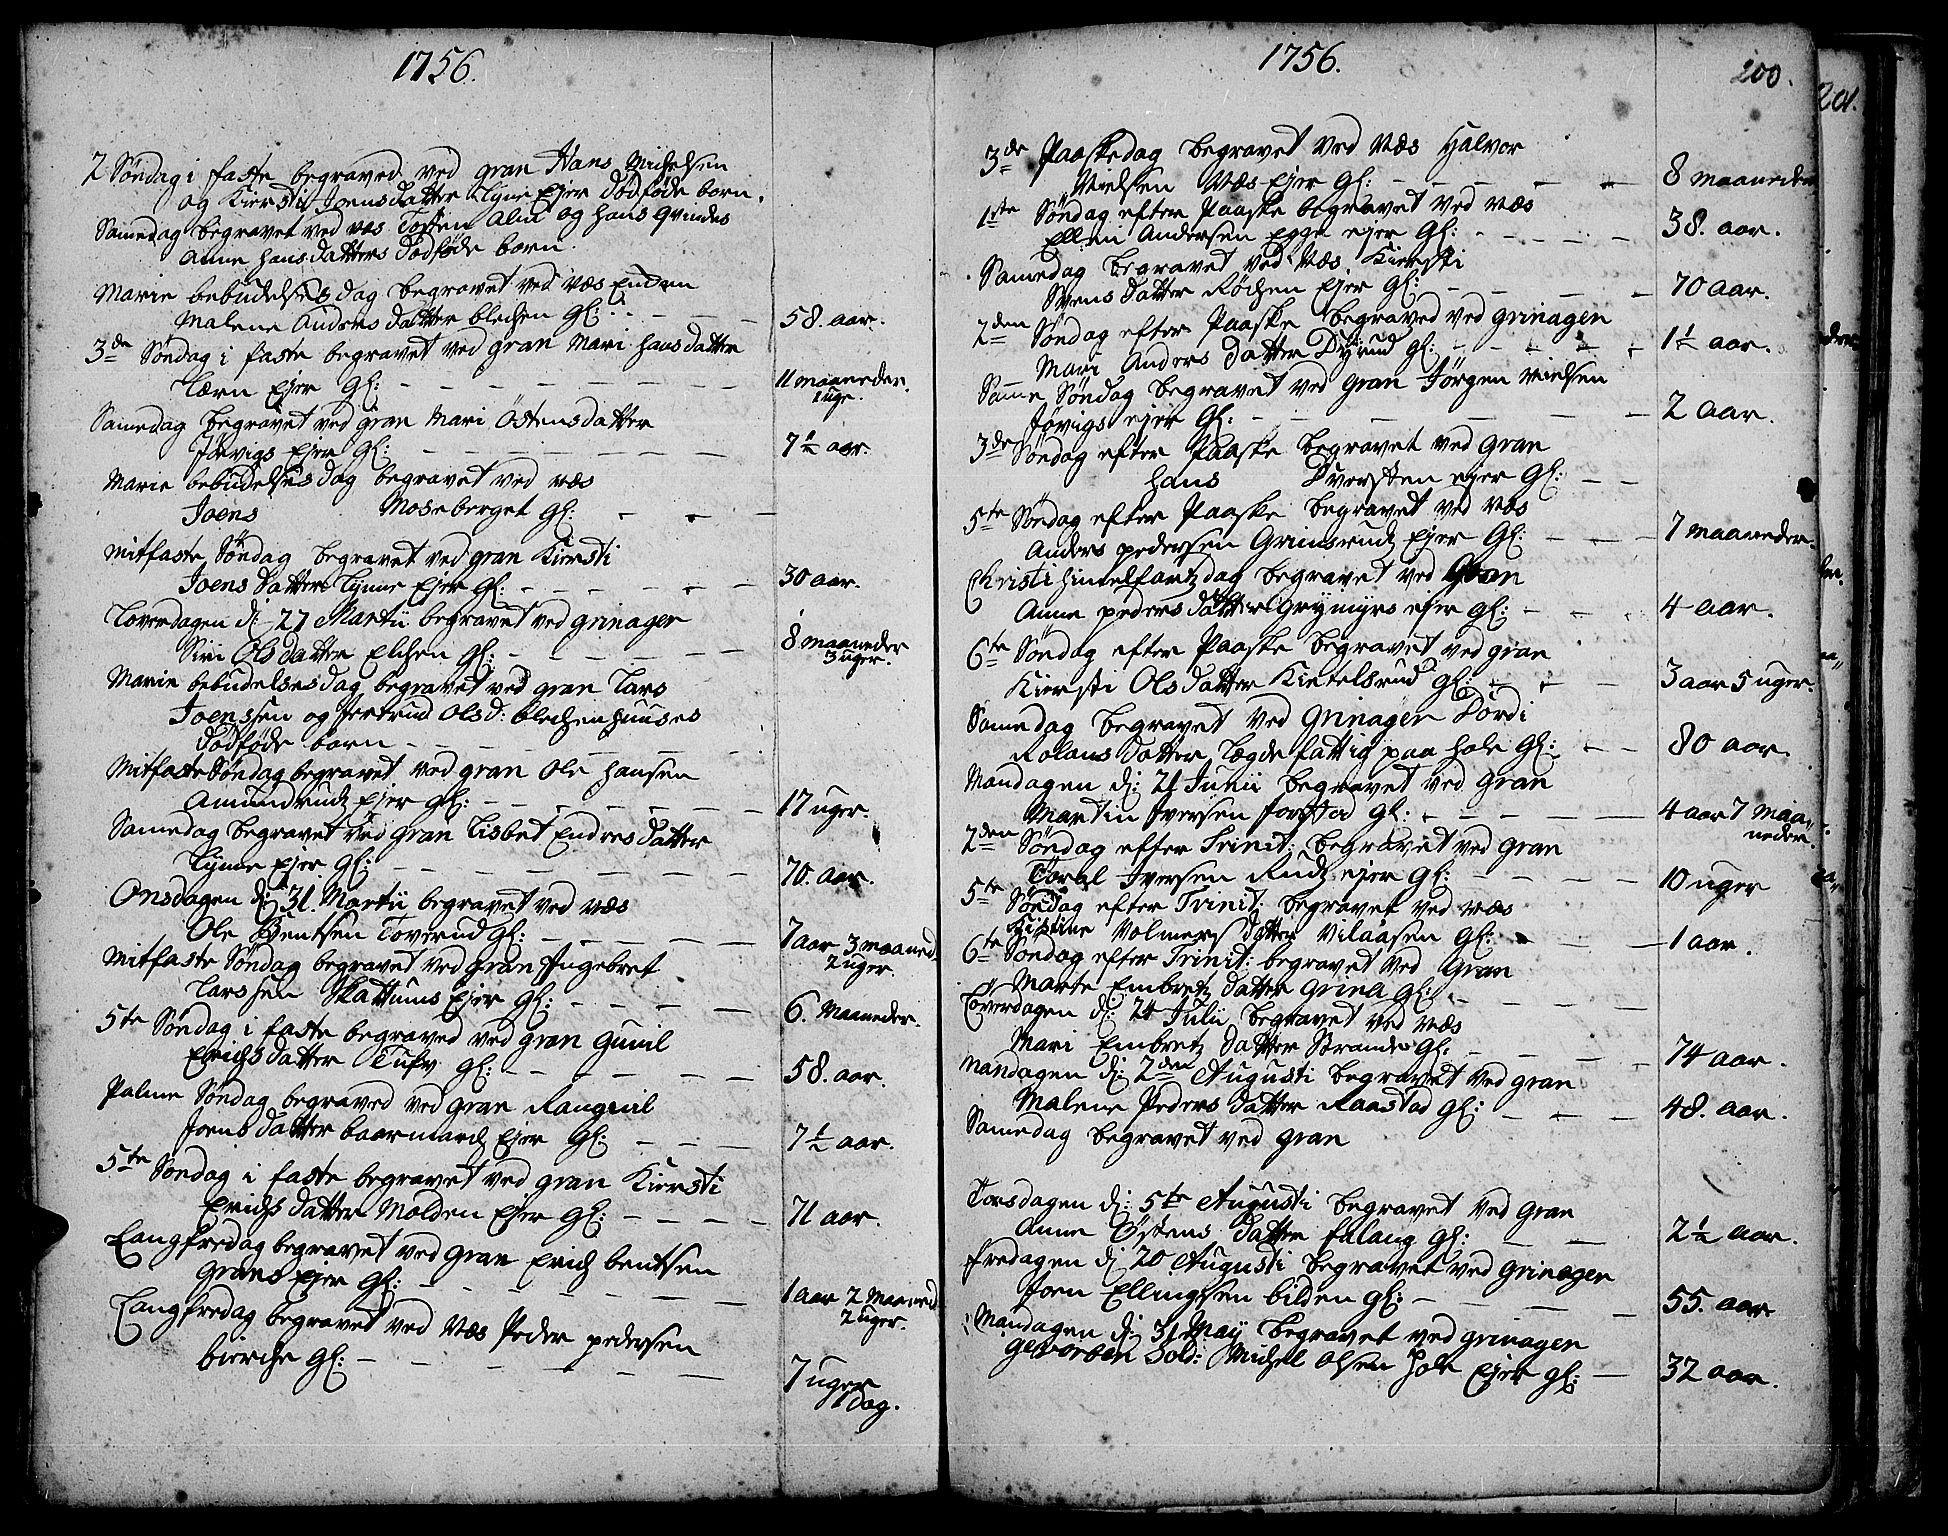 1756.
2 Søndag i faste begraved ved gran Hans Michelsen
og Kiersti Joensdatter Lyne Ejer dødføde barn.
Samedag begravet ved væs Torsten Alm og hans qvindes
Anne hansdatters dødføde barn
Marie bebudelses dag begravet ved væs Enchen
Malene Andersdatter blechen gl: - - - 58. aar.
3de Søndag i faste begravet ved gran Mari hansdatter
Lærn Ejer gl: - - - 11 maaneder. 1 uge.
Samedag begravet ved gran Mari Östensdatter
Jøvigs Ejer gl: - - - 7 1/2 aar.
Marie bebudelses dag begravet ved væs
Joens Moseberget gl: - - -
Mitfaste Søndag begravet ved gran Kiersti
Joens datter Lynne Ejer gl: - - - 30 aar.
Løverdagen d: 27 Martii begravet ved grinager
Siri Olsdatter Elchen gl: - - - 8 maaneder 3 uger.
Marie bebudelses dag begravet ved gran Lars
Joenssen og Jertrud Olsd: blechenhuuses
dødføde barn - - -
Mitfaste Søndag begravet ved gran Ole Hansen
Amundrudz Ejer gl: - - - 17 uger.
Samedag begravet ved gran Lisbet Endresdatter
Lynne Ejer gl: - - - 70. aar.
Onsdagen d: 31. Martii begravet ved væs
Ole Bentsen Toverud gl: - - - 7 aar 3 maaned. 2 uger.
Mitfaste Søndag begravet ved gran Ingebret
Larssen Skattums Ejer gl: - - - 6. Maaneder.
5te Søndag i faste begraved ved gran Gunil
Erichsdatter Tufv gl: - - - 58. aar.
Palme Søndag begraved ved gran Rangnil
Joens datter baarmarch Ejer gl: - - - 7 1/2 aar.
5te Søndag i faste begravet ved gran Kiersti
Erichs datter Molden Ejer gl: - - - 71 aar.
Langfredag begravet ved gran Erich bentsen
Grans Ejer gl: - - - 1 aar 2 Maaned 2 uger.
Langfredag begravet ved Væs Peder pedersen
bierche gl: - - - 7 uger 1 dag.
1756.
200.
201.
3de Paaskedag begravet ved Væs Halvor
Nielsen Væs Ejer gl: - - - 8 maaneder
1ste Søndag efter Paaske begravet ved Væs
Ellen Andersen Egge ejer gl: - - - 38. aar.
Samedag begravet ved Væs Kiersti
Svens datter Rochen Ejer gl: - - - 70 aar.
2den Søndag efter Paaske begraved ved grinagen
Mari Anders datter Dyrud gl: - - - 1 1/2 aar.
Samme Søndag begravet ved gran Jörgen Nielsen
Jøvigs ejer gl: - - - 2 aar.
3de Søndag efter Paaske begravet ved gran
Hans Dversten ejer gl: - -
5te Søndag efter Paaske begravet ved væs
Anders pedersen Grimsrudz Ejer gl: - - - 7 maaneder.
Christi himelfartz dag begravet ved Gran
Anne peders datter Grymyrs ejer gl: - - - 4 aar.
6te Søndag efter Paaske begravet ved gran
Kiersti Olsdatter Kietelsrud gl: - - - 3 aar 5 uger.
Samedag begravet ved Grinagen Dordi
Rolans datter Lægdefattig paa Hole gl: - - 80 aar.
Mandagen d: 21 Junii begravet ved gran
Martin Iversen Jorstad gl: - - - 4 aar 7 maaneder.
2den Søndag efter Trinit: begravet ved gran
Toral Iversen Rudz ejer gl: - - - 10 uger
5te Søndag efter Trinit: begravet ved væs
Kistine Volmers datter Vilaasen gl: - - - 1 aar.
6te Søndag efter Trinit: begravet ved Gran
Marte Embretz datter Grina gl: - - -
Løverdagen d: 24 Julii begravet ved væs
Mari Embretz datter Strande gl: - - - 74 aar.
Mandagen d: 2den Augusti begravet ved gran
Malene Peders datter Raastad gl: - - - 48. aar.
Samedag begravet ved gran
Torsdagen d: 5te Augusti begravet ved gran
Anne Östens datter falang gl: - - - 2 1/2 aar.
Fredagen d: 20 Augusti begravet ved grinagen
Joen Ellingsen bilden gl: - - - 55. aar.
Mandagen d: 31 May begravet ved grinagen
Gevorben Sold: Michel Olsen Hole Ejer gl: - 32 aar.